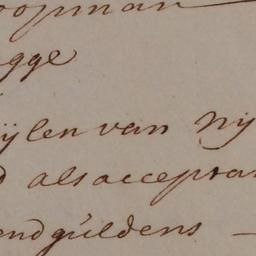 oopman
gge
ijlen van Nij
d als acceptan
end guldens —